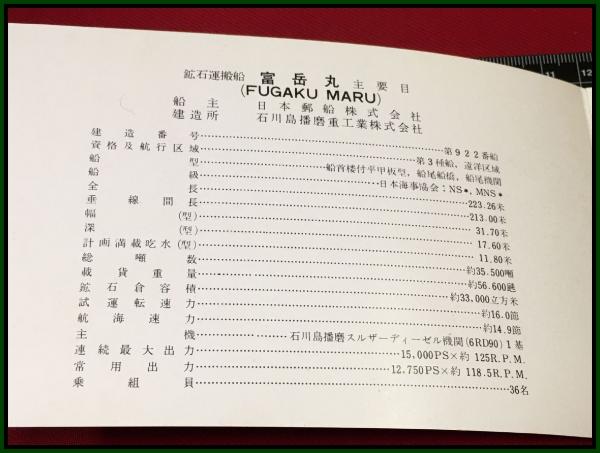 鉱石運搬船 富岳丸 主要目
(FUGAKU MARU)
船主 日本郵船株式会社
建造所 石川島播磨重工業株式会社
建造番号 第922番船
資格及航行区域 第3種船、遠洋区域
船型 船首楼付平甲板型, 船尾船橋, 船尾機関
船級 日本海事協会: NS*, MNS*
全長 223.26米
垂線間長 213.00米
幅 (型) 31.70米
深 (型) 17.60米
計画満載吃水 (型) 11.80米
総噸数 約35.500噸
載貨重量 約56.600瓲
鉱石倉容積 約33,000立方米
試運転速力 約16.0節
航海速力 約14.9節
主機 石川島播磨スルザーディーゼル機関 (6RD90) 1基
連続最大出力 15,000PS×約 125R.P.M.
常用出力 12,750PS×約 118.5R.P.M.
乗組員 36名
11
12